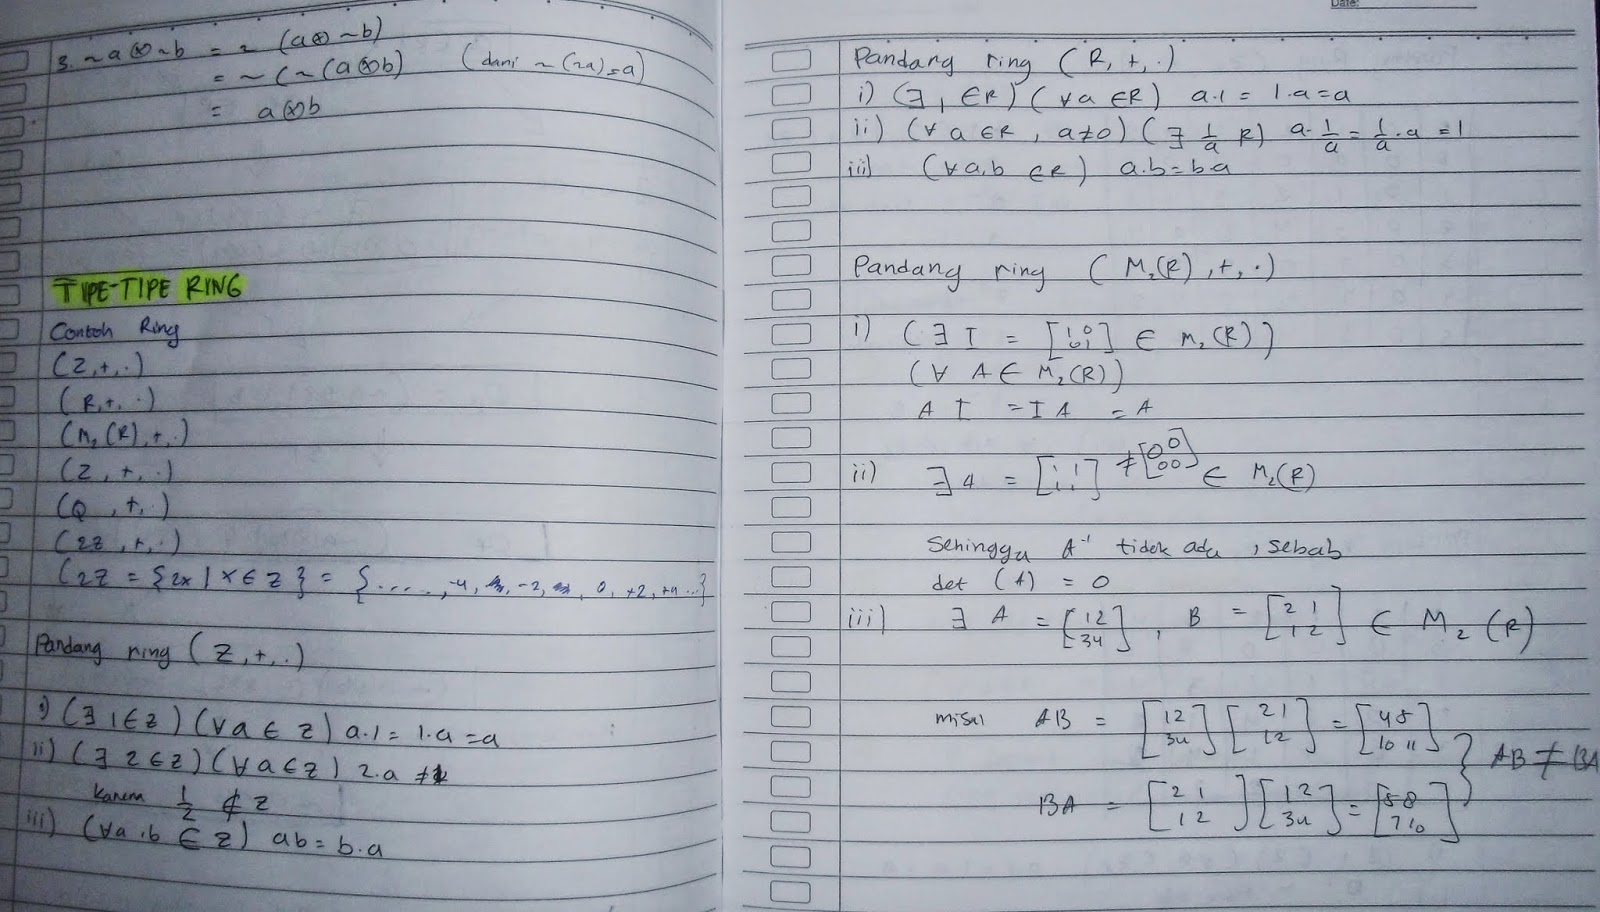 3. ~a⊗~b = ~ (a⊗ ~b)
= ~ (~ (a⊗b) (dari ~ (~a) = a)
= a⊗b
TIPE-TIPE RING
Contoh Ring
(Z,+,·)
(R,+,·)
(M₂(R),+,·)
(Z,+,·)
(Q,+,·)
(2Z,+,·)
(2Z = {2x | x ∈ Z} = {....., -4, -2, 0, +2, +4 ...}
Pandang ring (Z,+,·)
i) (∃ 1 ∈ Z) (∀ a ∈ Z) a·1 = 1·a = a
ii) (∃ 2 ∈ Z) (∀ a ∈ Z) 2·a ≠ 1
Karena 1/2 ∉ Z
iii) (∀ a,b ∈ Z) ab = b·a
Date:
Pandang ring (R,+,·)
i) (∃ 1 ∈ R) (∀ a ∈ R) a·1 = 1·a = a
ii) (∀ a ∈ R, a≠0) (∃ 1/a R) a·1/a = 1/a·a = 1
iii) (∀ a,b ∈ R) a.b = b.a
Pandang ring (M₂(R),+,·)
i) (∃ I = [1 0 0 1] ∈ M₂(R))
(∀ A ∈ M₂(R))
A I = I A = A
ii) ∃ A = [1 1 1 1] ≠ [0 0 0 0] ∈ M₂(R)
Sehingga A⁻¹ tidak ada, sebab
det (A) = 0
iii) ∃ A = [1 2 3 4], B = [2 1 1 2] ∈ M₂(R)
misal AB = [1 2 3 4] [2 1 1 2] = [4 5 10 11]
AB ≠ BA
BA = [2 1 1 2] [1 2 3 4] = [5 8 7 10]